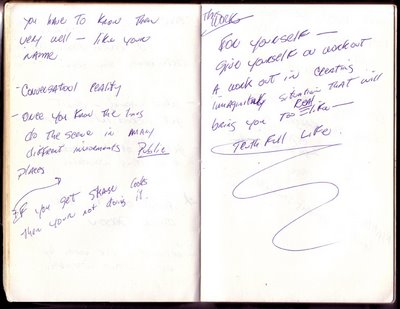 you have to know them
very well – like your
name
- Conversatool reality
- Once you know the lines
do the scene in many
different inviroments Public
places
If you get strange looks
then your not doing it.
This Work
For yourself –
give yourself a workout
A work out in creating
imaginitary situation that will
bring you to Real life –
Truth Full Life.